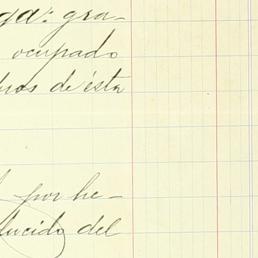 ga: gra-
ocupado
bros de ésta
por he-
lucido del